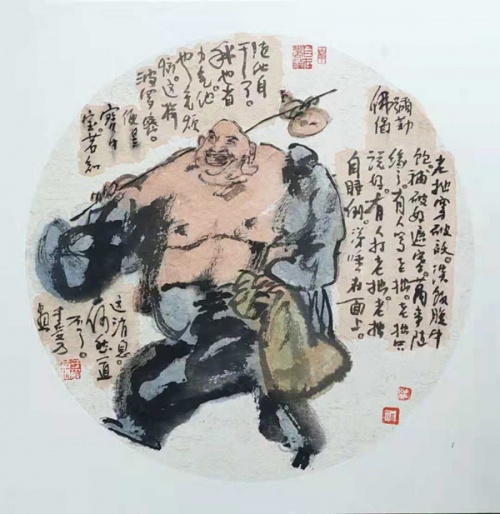 彌勒
佛偈
老拙穿破袄。淡飯腹中
飽補破好遮寒。萬事随
緣了。有人骂老拙。老拙只
説好。有人打老拙。老拙
自睡倒。涕唾在面上。
随他自
干了。
我也省
力气他
也无烦
惱。这樣
波罗蜜。
便是
妙中
宝若知
这消息。
何愁道
不了。